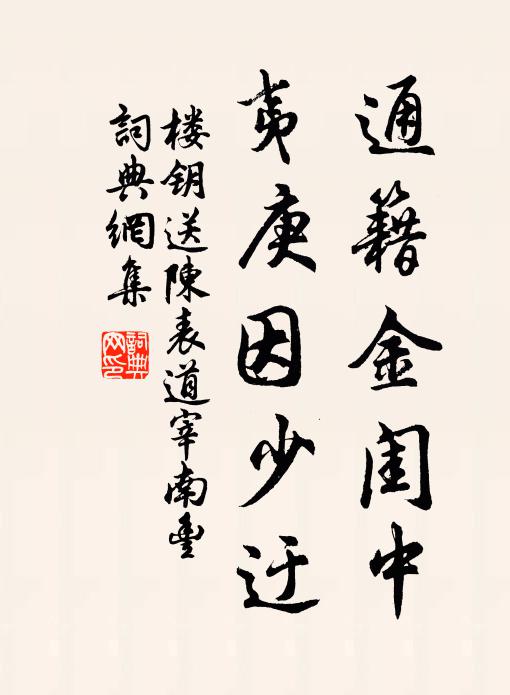 通籍金闺中
夷庚因少迂
楼钥送陳表道宰南豐
詞典網集
詞典网印